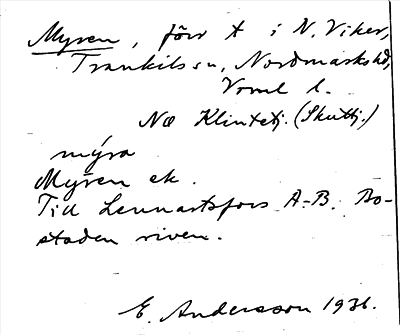 Myren, förr t i N. Viker,
Trankils sn, Nordmarks hd,
Vrml l.
No Klintetj. (Skuttj.)
mýra
Myren ek.
Till Lennartsfors A.-B. Bo-
staden riven.
E. Andersson 1936.